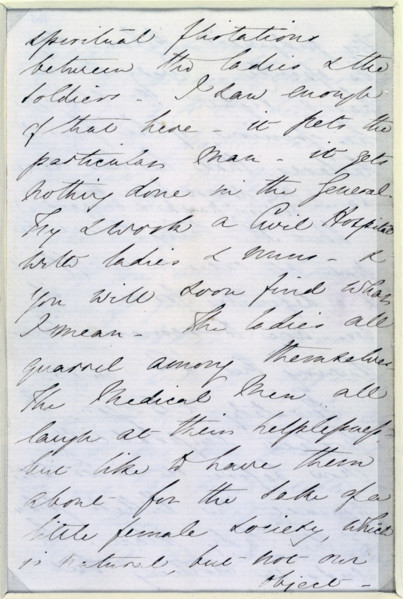 spiritual flirtations
between the ladies & the
soldiers - I saw enough
of that here - it pets the
particular man - it gets
nothing done in the general.
Try & work a Civil Hospital
with ladies & nuns - &
you will soon find what
I mean - The ladies all
quarrel among themselves
The Medical Men all
laugh at their helplessness -
but like to have them
about for the sake of a
little female society, which
is natural, but not our
object -